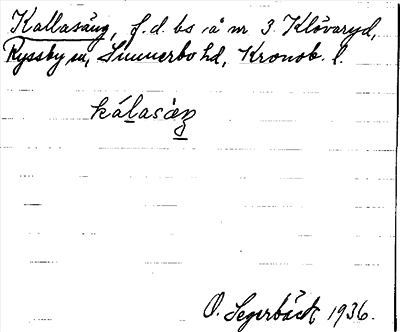 Kallasäng, f.d. bs å nr 3 Klövaryd,
Ryssby sn, Sunnerbo hd, Kronob. l.
kálasàŋ
O. Segerbäck 1936.